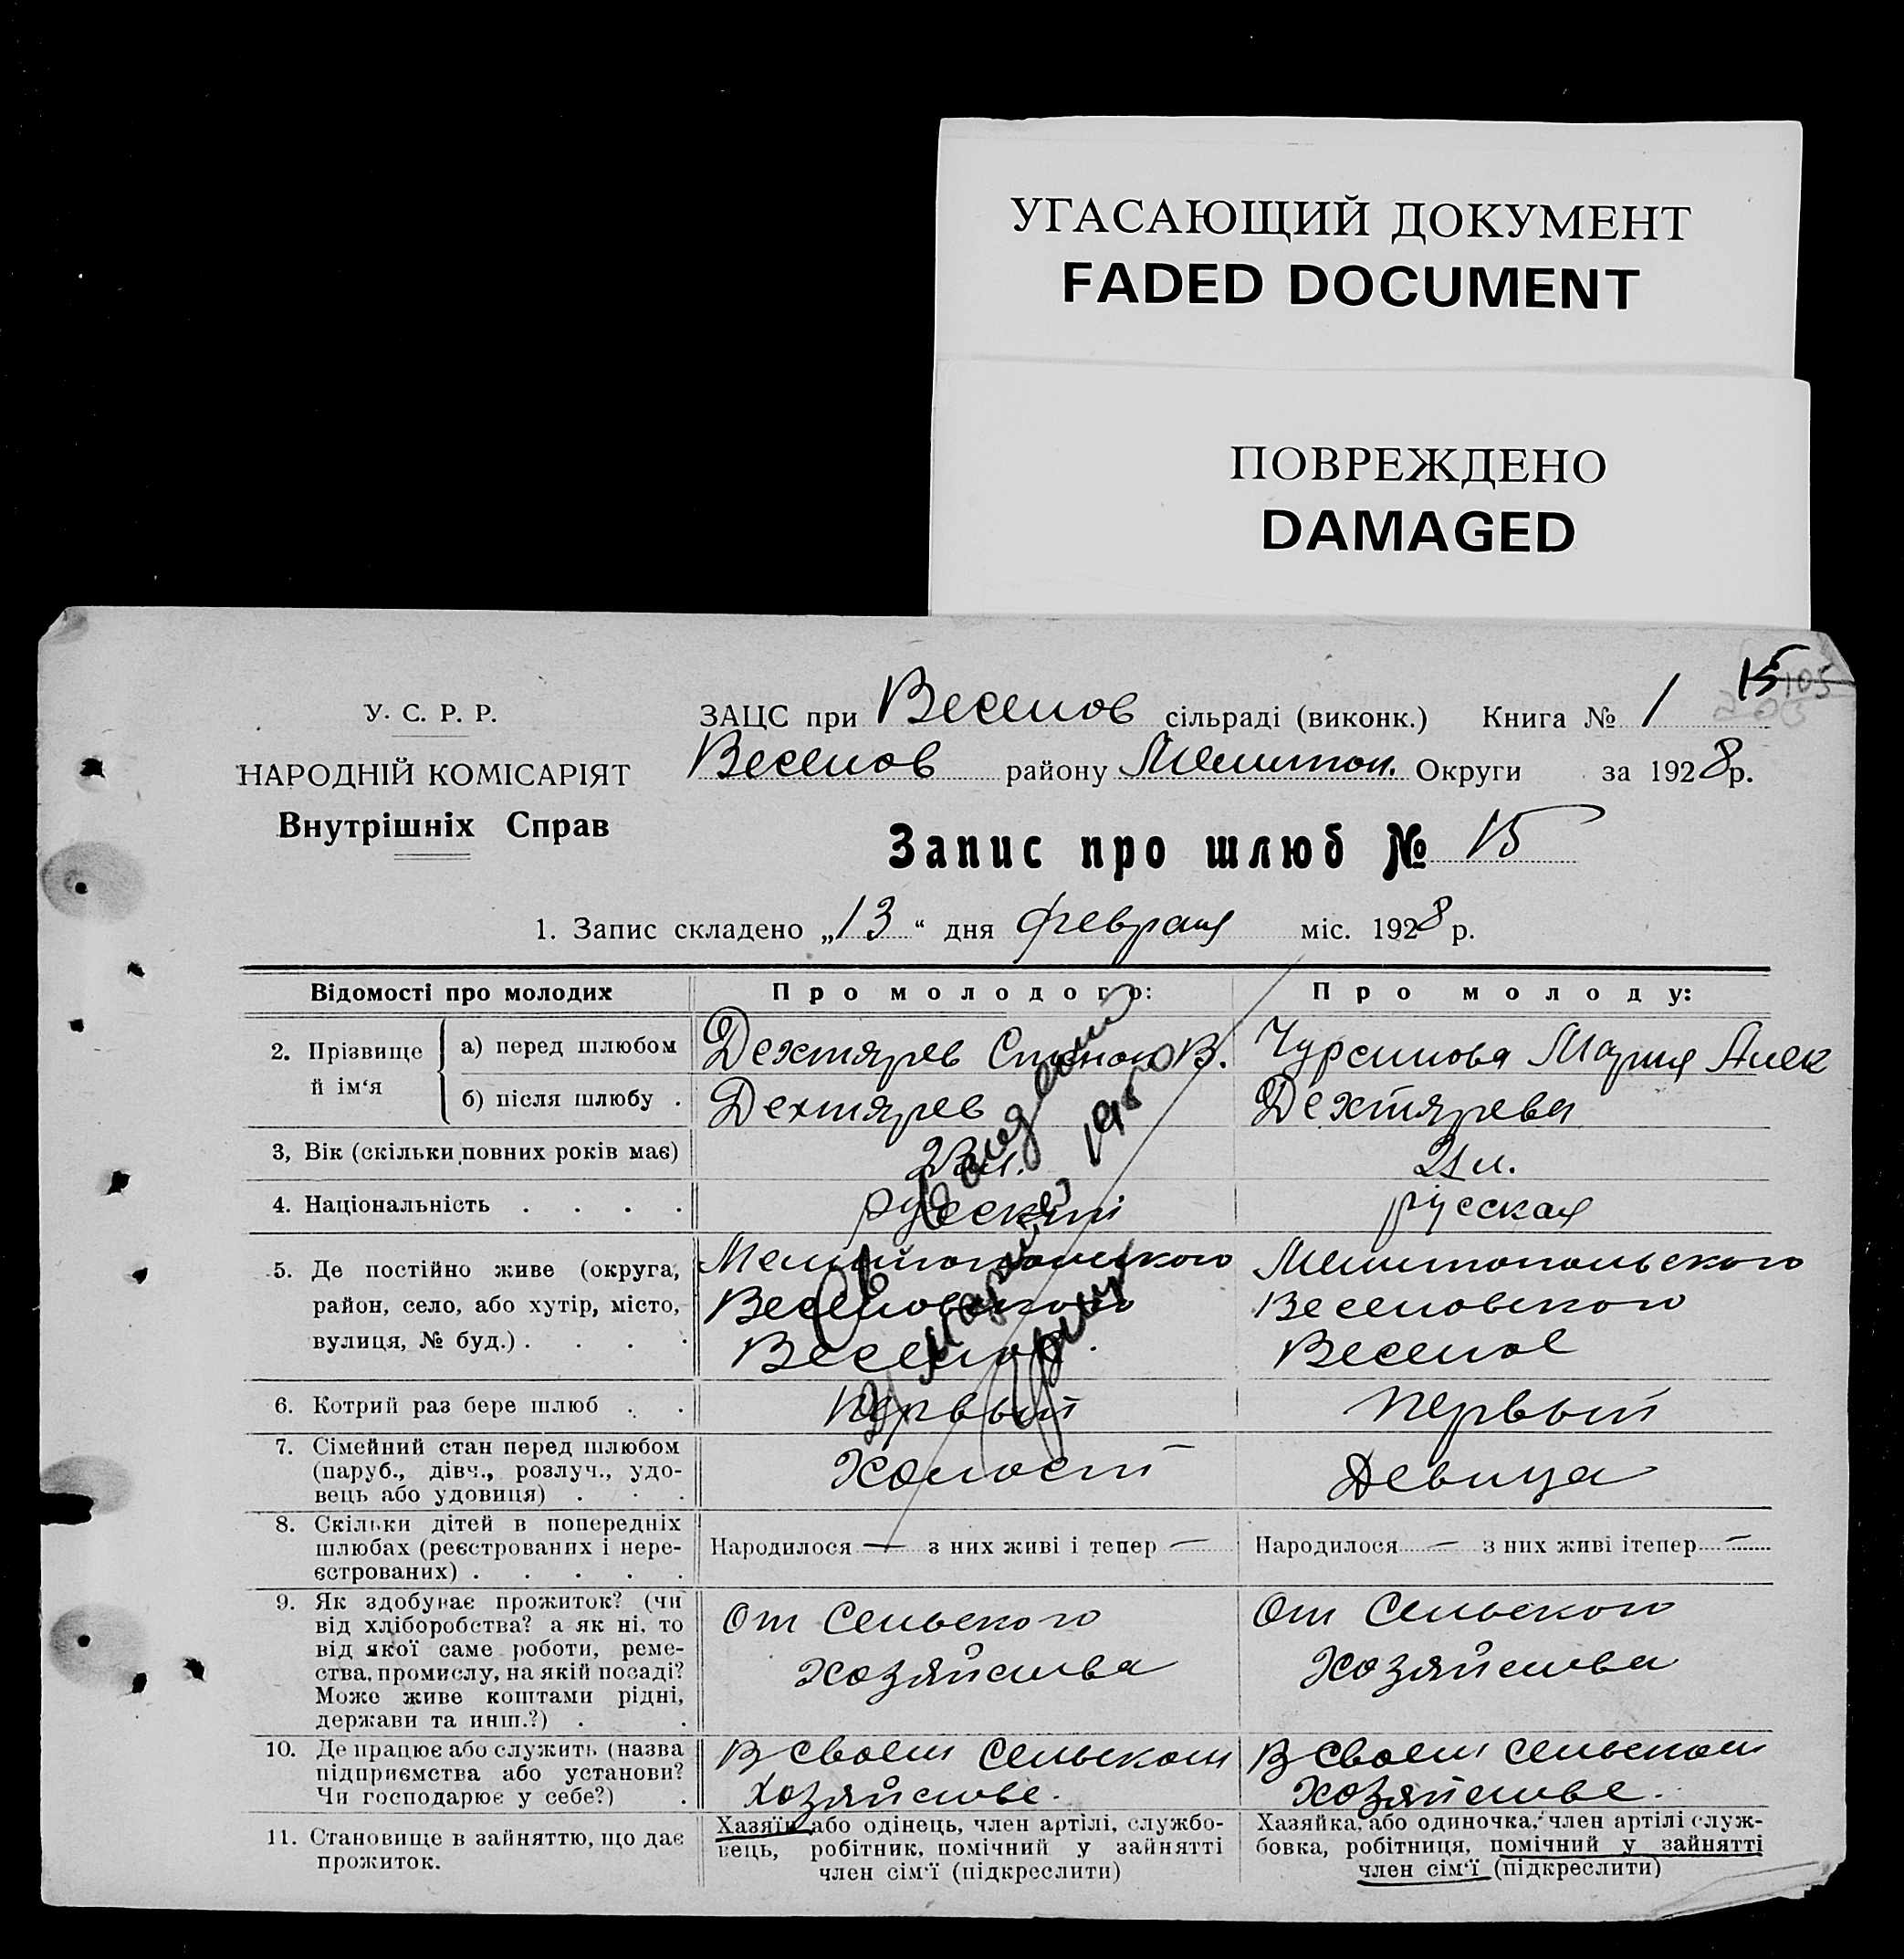 УГАСАЮЩИЙ ДОКУМЕНТ
FADED DOCUMENT
ПОВРЕЖДЕНО
DAMAGED
15
105
У. С. Р. Р.
НАРОДНІЙ КОМІСАРІЯТ
Внутрішніх Справ
ЗАЦС при Веселов сільраді (виконк.) Книга № 1
Веселов району Мелитоп. Округи за 1928 р.
Запис про шлюб № 15
1. Запис складено „13“ дня февраля міс. 1928 р.
Відомості про молодих
Про молодого:
Про молоду:
2. Прізвище й ім‘я
а) перед шлюбом
Дехтярев В.
Чурсинова Мария Алек
б) після шлюбу .
Дехтярев
Дехтярева
3, Вік (скільки повних років має)
21 л.
4. Національність . . . .
русский
русская
5. Де постійно живе (округа,
район, село, або хутір, місто,
вулиця, № буд.) . . . .
Мелитопольского
Веселовского
Веселое
Мелитопольского
Веселовского
Веселое
6. Котрий раз бере шлюб . .
Первый
Первый
7. Сімейний стан перед шлюбом
(паруб., дівч., розлуч., удо-
вець або удовиця) . . .
Холост
Девица
8. Скільки дітей в попередніх
шлюбах (реєстрованих і нере-
єстрованих) . . . . .
Народилося — з них живі і тепер —
Народилося — з них живі ітепер —
9. Як здобуває прожиток? (чи
від хліборобства? а як ні, то
від якої саме роботи, реме-
ства, промислу, на якій посаді?
Може живе коштами рідні,
держави та инш.?) . .
От Сельского
Хозяйства
От Сельского
Хозяйства
10. Де працює або служить (назва
підприємства або установи?
Чи господарює у себе?) .
В своем Сельском
хозяйстве.
В своем сельском
хозяйстве.
11. Становище в зайняттю, що дає
прожиток.
Хазяїн або одінець, член артілі, службо-
вець, робітник, помічний у зайнятті
член сім‘ї (підкреслити)
Хазяйка, або одиночка, член артілі служ-
бовка, робітниця, помічний у зайнятті
член сім‘ї (підкреслити)